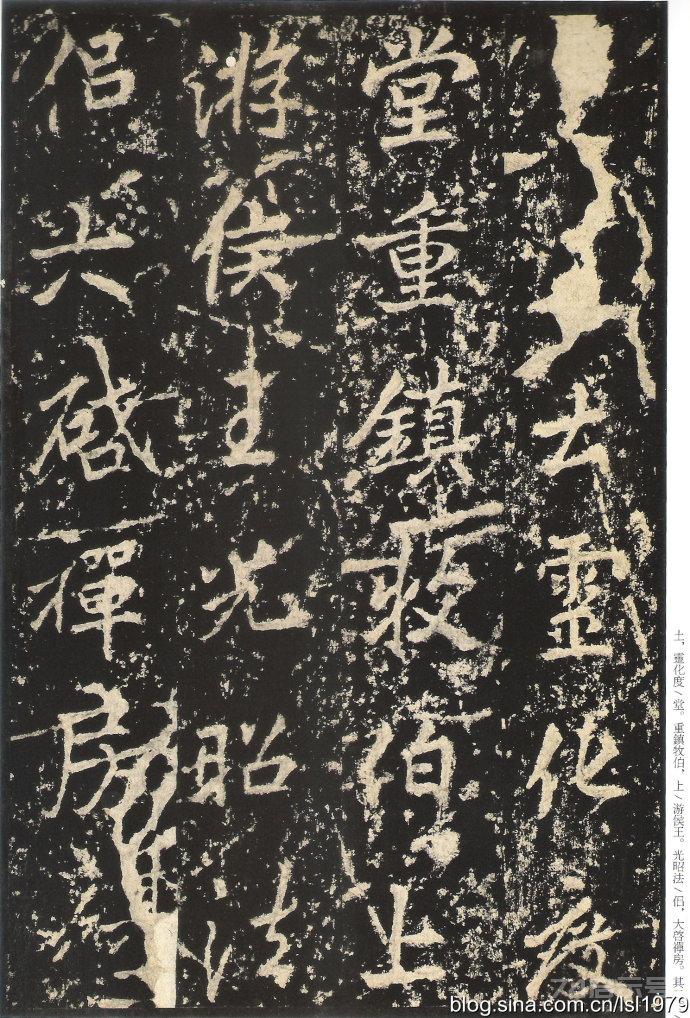 土靈化度
堂重鎮牧伯上
游侯王光昭法
侶大啓禪房
土，靈化度／堂。重鎮牧伯，上／游侯王。光昭法／侣，大啓禪房。其
blog.sina.com.cn/lsl1979